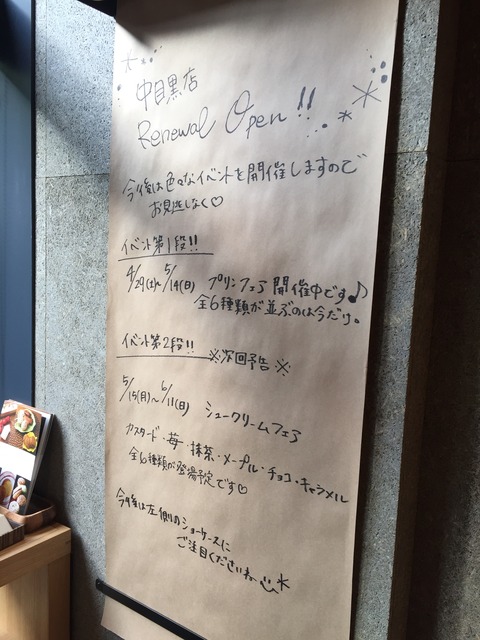 中目黒店
Renewal Open!!
今後は色々なイベントを開催しますので
お見逃しなく♡
イベント第1段!!
4/29(土)~5/14(日) プリンフェア開催中です♪
全6種類が並ぶのは今だけ。
イベント第2段!! ※次回予告※
5/15(月)~6/11(日) シュークリームフェア
カスタード・苺・抹茶・メープル・チョコ・キャラメル
全6種類が登場予定です♡
今後は左側のショーケースに
ご注目くださいね